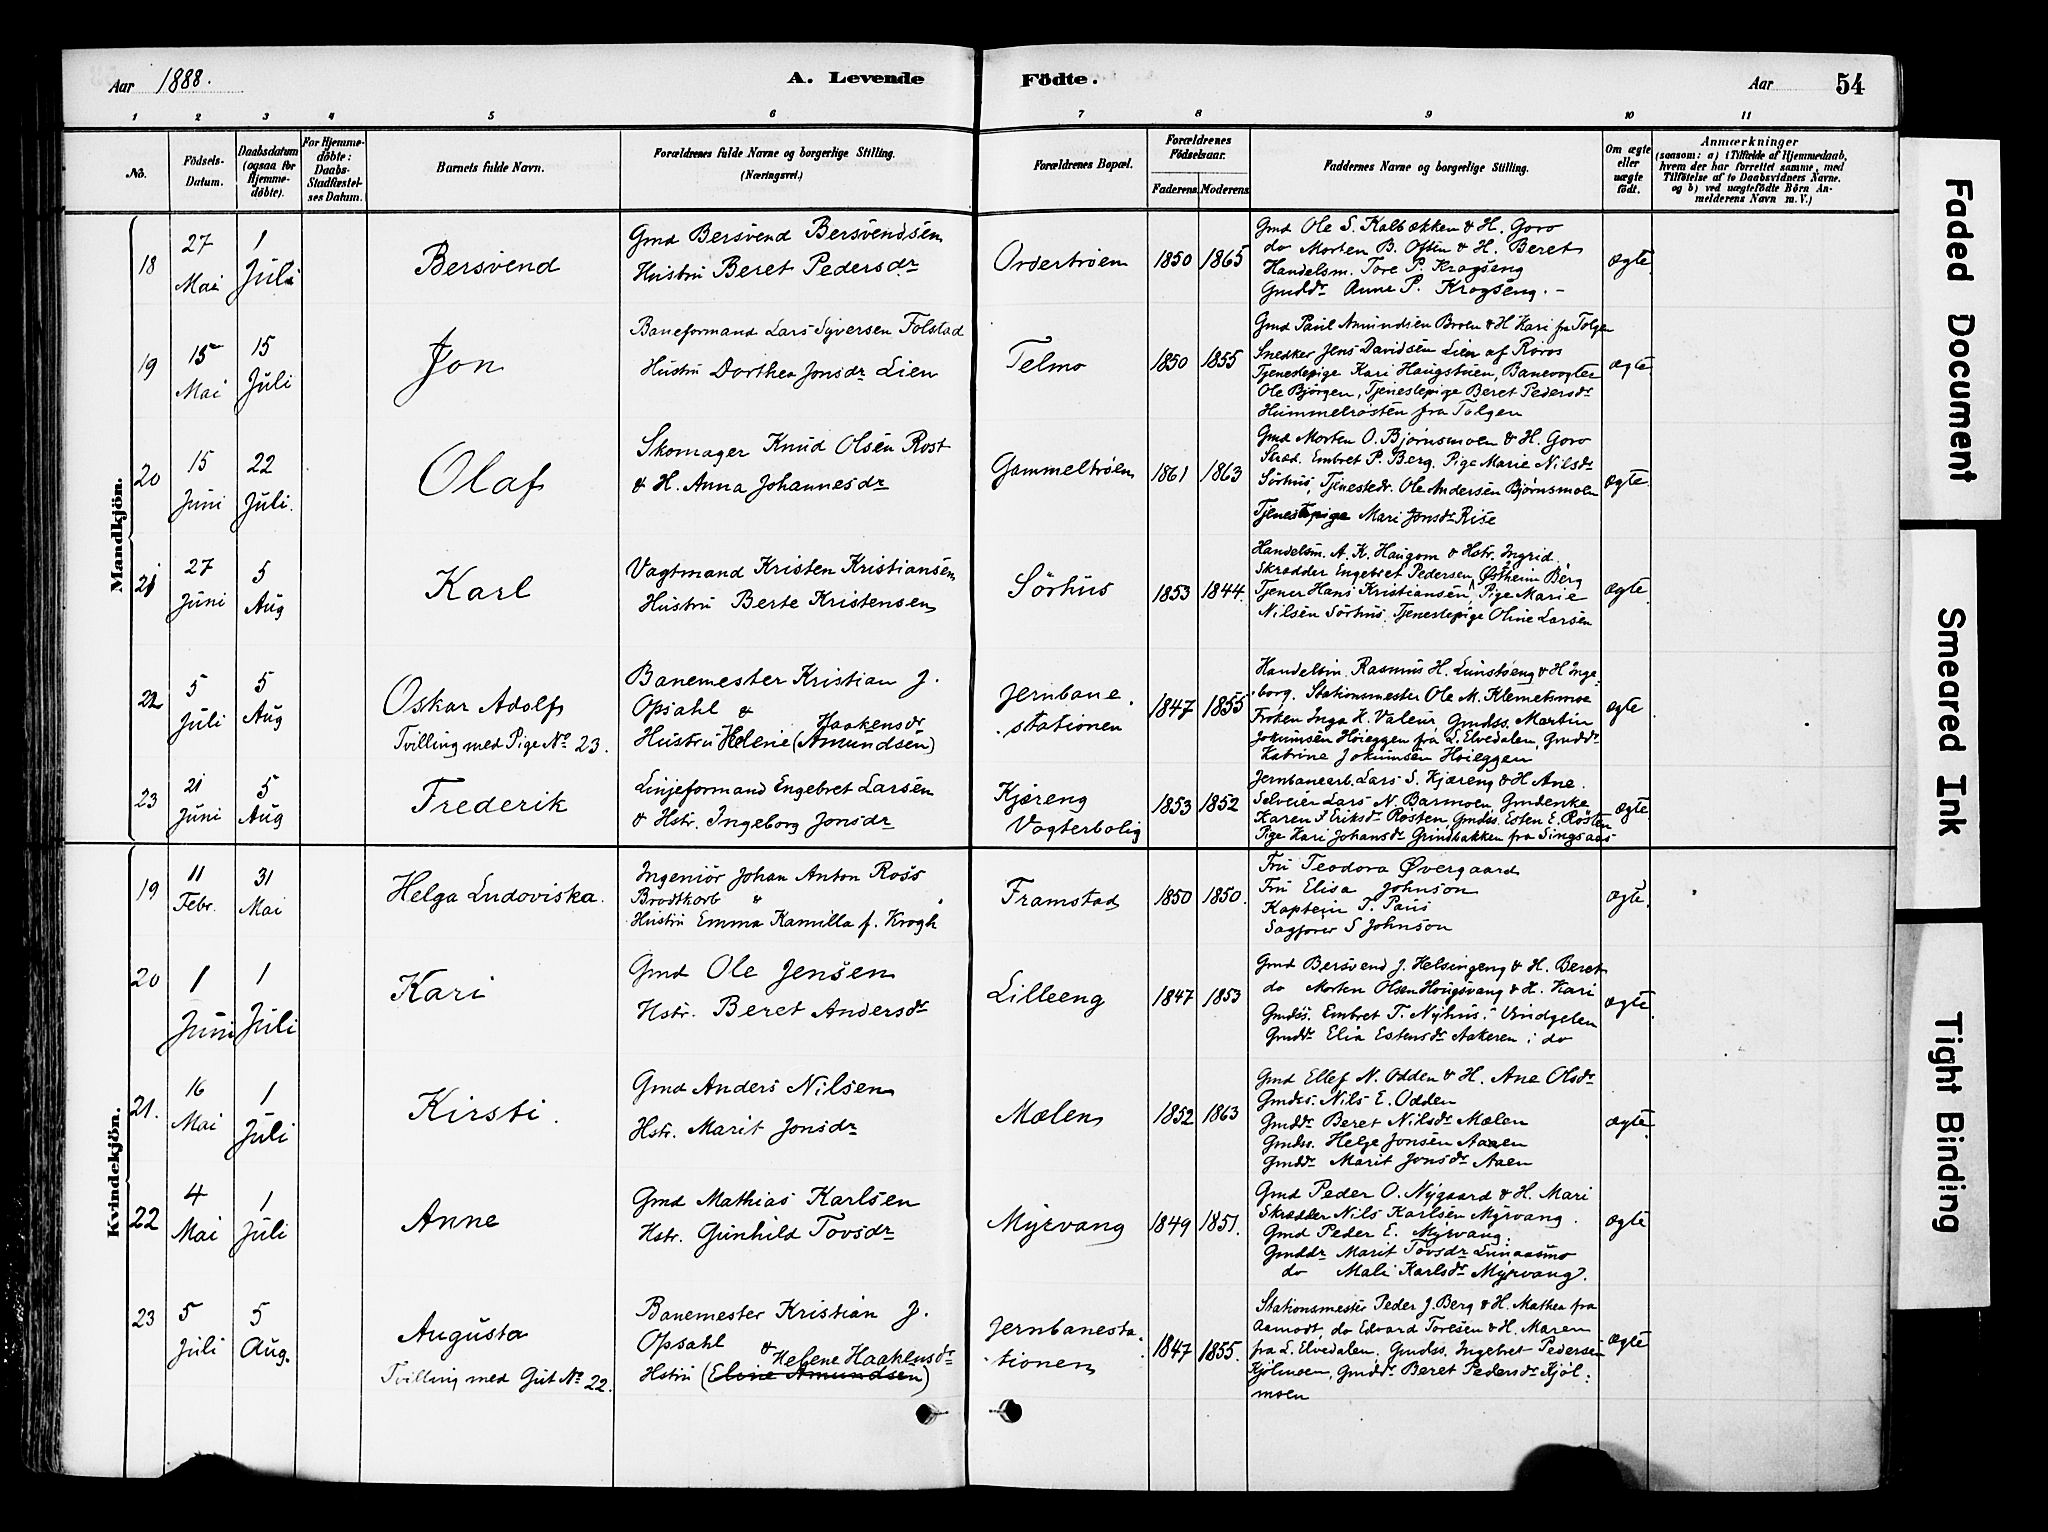 Aar 1888.
A. Levende Födte.
Aar
54
1 2 3 4 5 6 7 8 9 10 11
No.
Födsels-
Datum.
Daabsdatum
(ogsaa for
Hjemme-
döbte).
For Hjemme-
döbte:
Daabs-
Stadfæstel-
ses Datum.
Barnets fulde Navn.
Forældrenes fulde Navne og borgerlige Stilling.
(Næringsvei.)
Forældrenes Bopæl.
Forældrenes
Födselsaar.
Faderens. Moderens.
Faddernes Navne og borgerlige Stilling.
Om ægte
eller
uægte
födt.
Anmærkninger
(saasom: a) i Tilfælde af Hjemmedaab,
hvem der har forrettet samme, med
Tilföielse af to Daabsvidners Navne.
og b) ved uægtefödte Börn An-
melderens Navn m. V.)
Mandkjön.
18
27
Mai
1
Juli
Bersvend
Gmd Bersvend Bersvendsen
Hustru Beret Pedersdr
Ordertrøen
1850 1865
Gmd Ole S. Kalbækken & H. Goro
do Morten B. Often & H. Beret
Handelsm. Tore P. Krogseng
Gmddr Anne P. Krogseng. -
ægte
19
15
Mai
15
Juli
Jon
Baneformand Lars Syversen Folstad
Hustru Dorthea Jonsdr Lien
Telmo
1850 1855
Gmd Paul Amundsen Broen & H Kari fra Tolgen
Snedker Jens Davidsen Lien af Röros
Tjenestepige Kari Haugstrien, Banevogter
Ole Bjørgen, Tjenestepige Beret Pedersdr
Hummelrosten fra Tolgen
ægte
20
15
Juni
22
Juli.
Olaf
Skomager Knud Olsen Rost
& H. Anna Johannesdr
Gammeltrøen
1861 1863
Gmd Morten O. Bjørnsmoen & H. Goro
Skræd. Embret P. Berg. Pige Marie Nilsdr
Sörhus, Tjenestedr. Ole Andersen Bjørnsmoen
Tjenestepige Mari Jonsdr Rise
ægte.
21
27
Juni
5
Aug
Karl
Vagtmand Kristen Kristiansen
Hustru Berte Kristensen
Sörhus
1853 1844.
Handelsm. A. K. Haugom & Hstr. Ingrid.
Skrædder Engebret Pedersen Østheim Berg
Tjener Hans Kristiansen, Pige Marie
Nilsen Sörhus, Tjenestepige Oline Larsen
ægte
22
5
Juli
5
Aug
Oskar Adolf
Tvilling med Pige No 23.
Banemester Kristian J.
Opsahl & Haakensdr
Hustru Helene (Amundsen)
Jernbane
stationen
1847 1855
Handelsm. Rasmus H. Lunstøeng & H Inge-
borg. Stationsmester Ole M. Klemetsmoe
Frøken Inga K. Valeur, Gmdss. Martin
Jokumsen Høieggen fra L. Elvedalen, Gmddr
Katrine Jokumsen Hoieggen
ægte
23
21
Juni
5
Aug
Frederik
Linjeformand Engebret Larsen
& Hstr. Ingeborg Jonsdr
Kjæreng
Vogterbolig
1853 1852
Jernbanearb. Lars S. Kjæreng & H. Ane.
Selveier Lars N. Barmoen, Gmdenke
Karen J Eriksdr Røsten, Gmdss. Esten E. Røsten
Pige Kari Johansdr Grindbakken fra Singsaas
ægte
Kvindekjön.
19
11
Febr.
31
Mai
Helga Ludoviska.
Ingeniör Johan Anton Ross
Brodtkorb &
Hustru Emma Kamilla f. Krogh
Framstad
1850 1850.
Fru Teodora Øvergaard
Fru Elisa Johnson
Kaptein T. Paus
Sagfører S Johnson
ægte.
20
1
Juni
1
Juli
Kari
Gmd Ole Jensen
Hstr. Beret Andersdr
Lilleeng
1847 1853
Gmd Bersvend J. Helsingeng & H. Beret
do Morten Olsen Hougsvang & H. Kari
Gmdss. Embret T. Nyhus. Vindgelen
Gmddr Elia Estensdr Aakeren i do
ægte
21.
16
Mai
1
Juli
Kirsti.
Gmd Anders Nilsen
Hstr. Marit Jonsdr
Mælen
1852 1863
Gmd Ellef N. Odden & H. Ane Olsdr
Gmdss. Nils E. Odden
Gmddr Beret Nilsdr Mælen
Gmdss. Helge Jonsen Aaen
Gmddr Marit Jonsdr Aaen
ægte
22
4
Mai
1
Juli
Anne
Gmd Mathias Karlsen
Hstr. Gunhild Tovsdr
Myrvang
1849 1851.
Gmd Peder O. Nygaard & H. Mari
Skrædder Nils Karlsen Myrvang.
Gmd Peder E. Myrvang.
Gmddr Marit Tovsdr Lunaasmo
do Mali Karlsdr Myrvang.
ægte
23
5
Juli
5
Aug.
Augusta
Tvilling med Gut No 22.
Banemester Kristian J.
Opsahl & Helene Haakensdr
Hstru (Eline Amundsen)
Jernbanesta
tionen
1847 1855.
Stationsmester Peder J. Berg & H. Mathea fra
Aamodt, do Edvard Toresen & H. Maren
fra L. Elvedalen. Gmdss. Ingebret Pedersen
Kjölmoen, Gmddr Beret Pedersdr Kjöl-
moen
ægte
Faded Document
Smeared Ink
Tight Binding